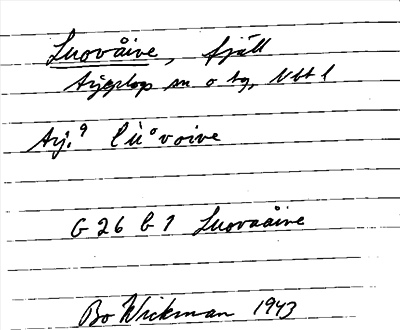 Luovåive, fjäll
Arjeplogs sn o tg, Vbt l
Arj. 9 lu̇°voive
G 26 b 1 Luovaåive
Bo Wickman 1943